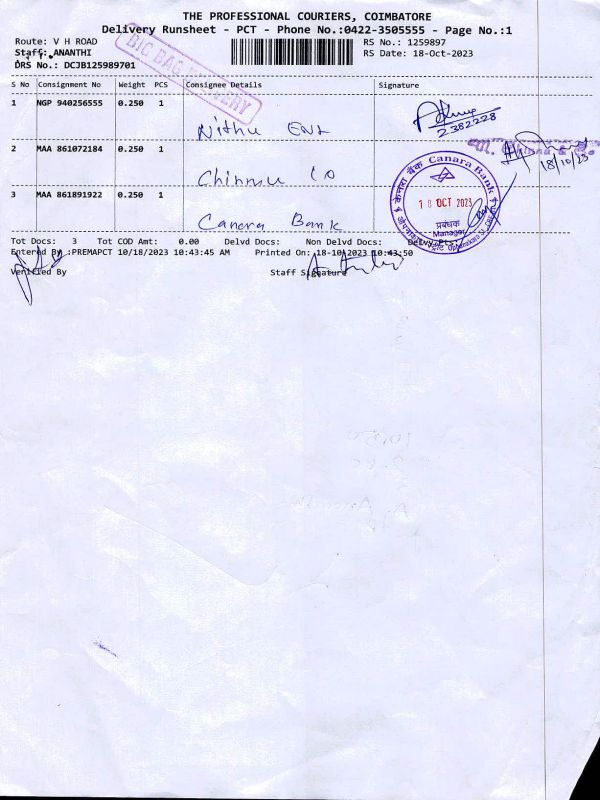 THE PROFESSIONAL COURIERS, COIMBATORE
Delivery Runsheet - PCT - Phone No.:0422-3505555 - Page No.:1
Route: V H ROAD
RS No.: 1259897
Staff: ANANTHI
RS Date: 18-Oct-2023
DRS No.: DCJB125989701
BIG BAG DELIVERY
S No Consignment No Weight PCS Consignee Details Signature
1 NGP 940256555 0.250 1
Nithu Ent
2382228
2 MAA 861072184 0.250 1
Chinnu
18/10/23
3 MAA 861891922 0.250 1
Canara Bank
केनरा बैंक Canara Bank
18 OCT 2023
प्रबंधक
Manager
Tot Docs: 3 Tot COD Amt: 0.00 Delvd Docs: Non Delvd Docs:
Entered By :PREMAPCT 10/18/2023 10:43:45 AM Printed On: 18-10-2023 10:43:50
Verified By Staff Signature